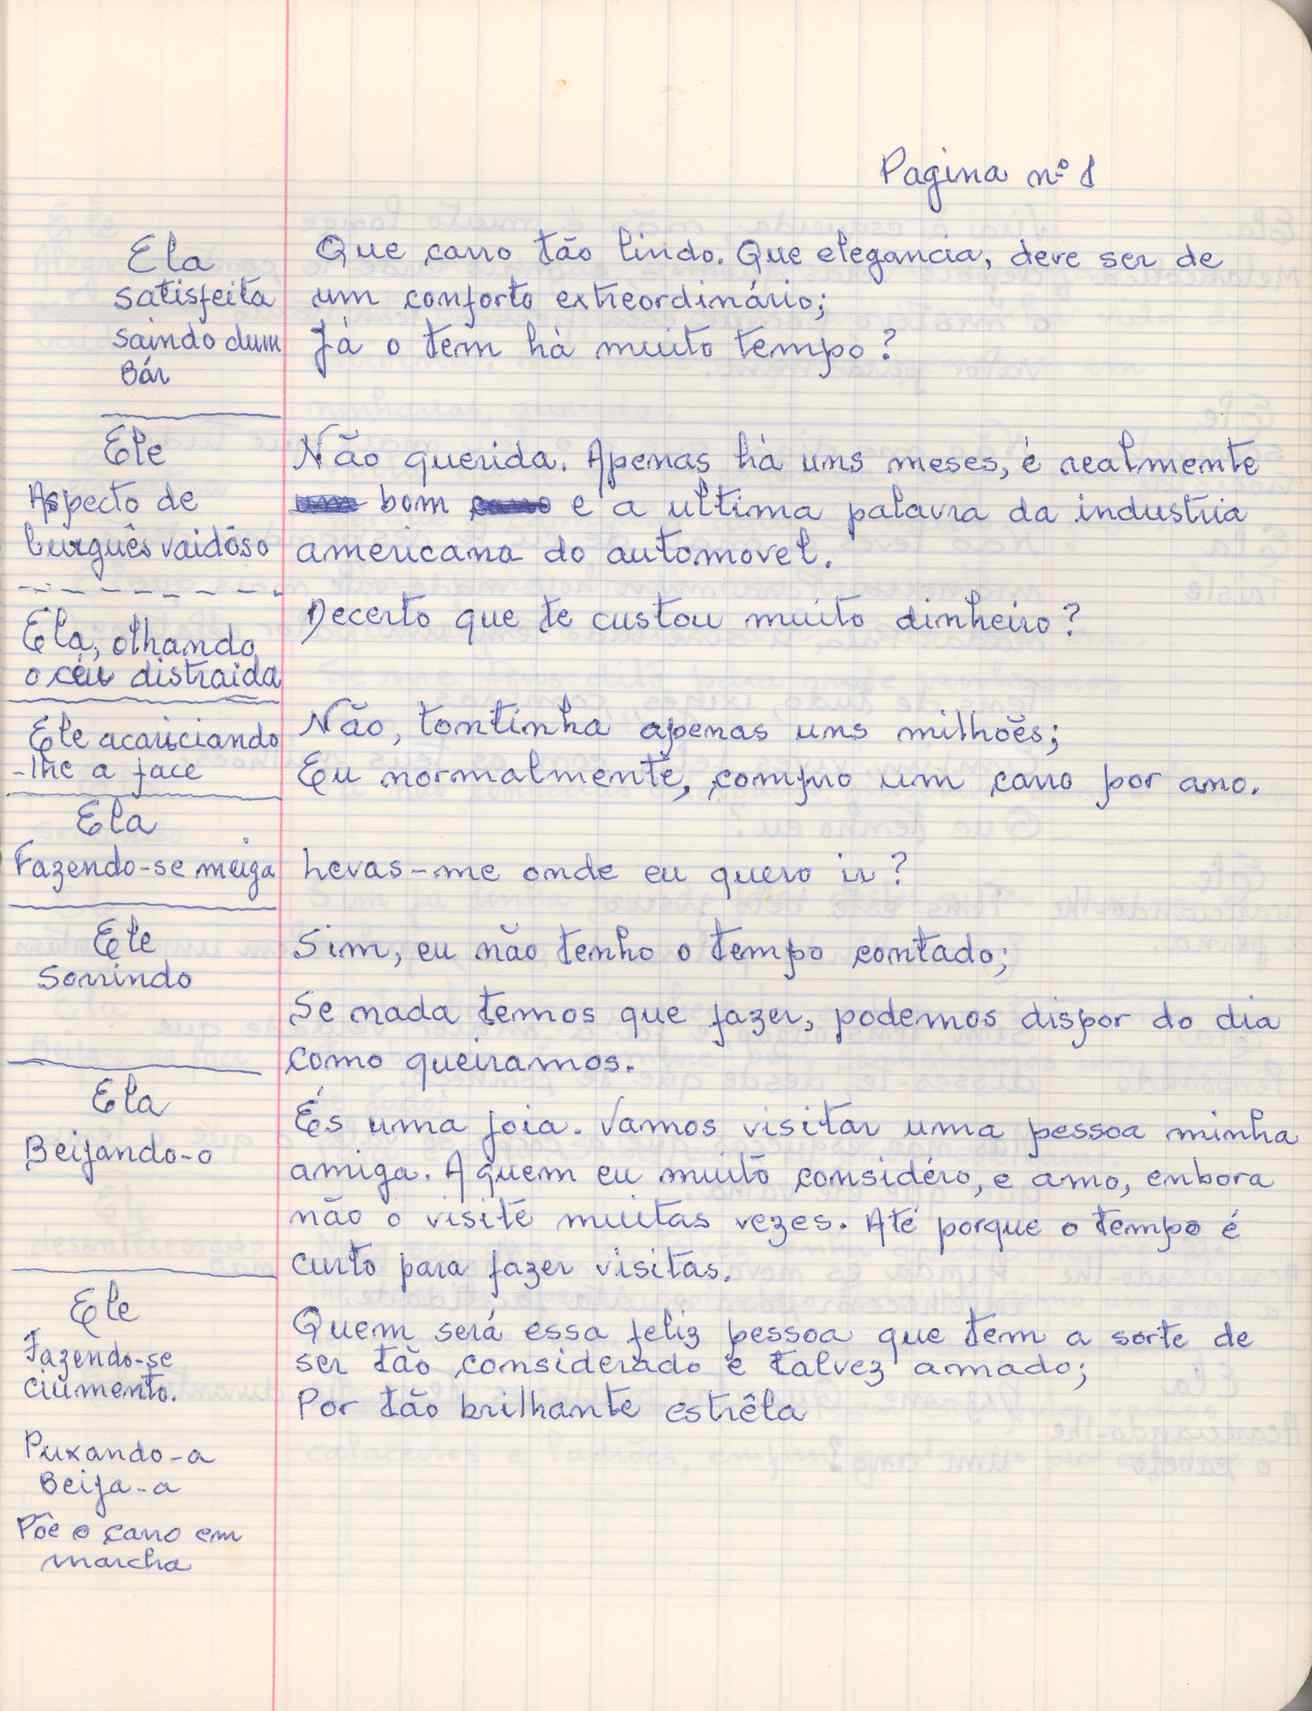 Pagina nº 1
Ela
satisfeita
saindo dum
Bár
Que carro tão lindo. Que elegancia, deve ser de
um conforto extreordinário;
Já o tem há muito tempo?
Ele
Aspecto de
burguês vaidóso
Não querida. Apenas há uns meses, é realmente
bom e a ultima palavra da industria
americana do automovel.
Ela, olhando
o céu distraida
Decerto que te custou muito dinheiro?
Ele acariciando
-lhe a face
Não, tontinha apenas uns milhões;
Eu normalmente, compro um carro por ano.
Ela
Fazendo-se meiga
Levas-me onde eu quero ir?
Ele
Sorrindo
Sim, eu não tenho o tempo contado;
Se nada temos que fazer, podemos dispor do dia
como queiramos.
Ela
Beijando-o
És uma joia. Vamos visitar uma pessoa minha
amiga. A quem eu muito considéro, e amo, embora
não o visite muitas vezes. Até porque o tempo é
curto para fazer visitas.
Ele
Fazendo-se
ciumento.
Puxando-a
Beija-a
Põe o carro em
marcha
Quem será essa feliz pessoa que tem a sorte de
ser tão considerado e talvez amado;
Por tão brilhante estrêla